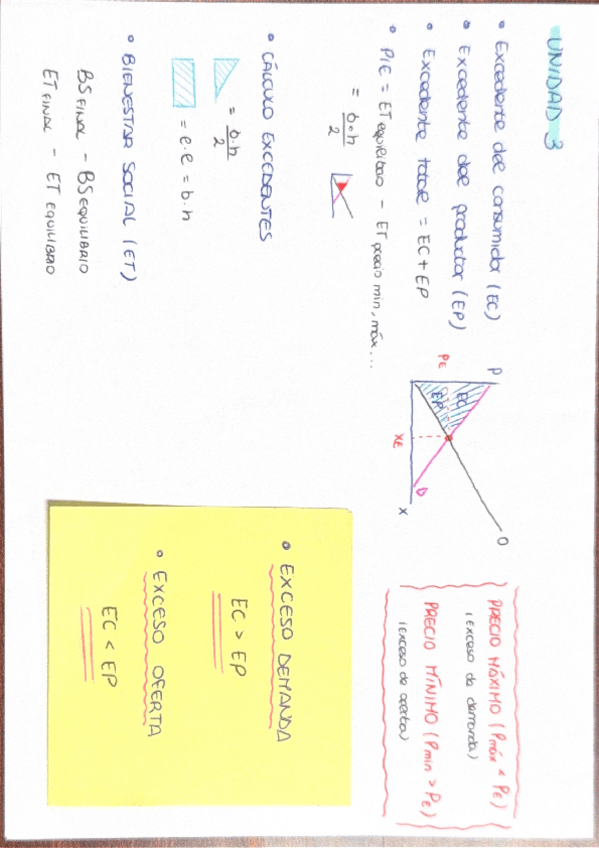 UNIDAD 3
• Excedente del consumidor (EC)
• Excedente del productor (EP)
• Excedente total = EC + EP
• PIE = ET equilibrio - ET precio min, máx...
= b·h
2
P
PE
EC
EP
XE
X
D
O
PRECIO MÁXIMO (Pmáx < PE)
(exceso de demanda)
PRECIO MÍNIMO (Pmin > PE)
(exceso de oferta)
• CÁLCULO EXCEDENTES
= b·h
2
= l·l = b·h
• BIENESTAR SOCIAL (ET)
BS FINAL - BS EQUILIBRIO
ET FINAL - ET EQUILIBRIO
• EXCESO DEMANDA
EC > EP
• EXCESO OFERTA
EC < EP